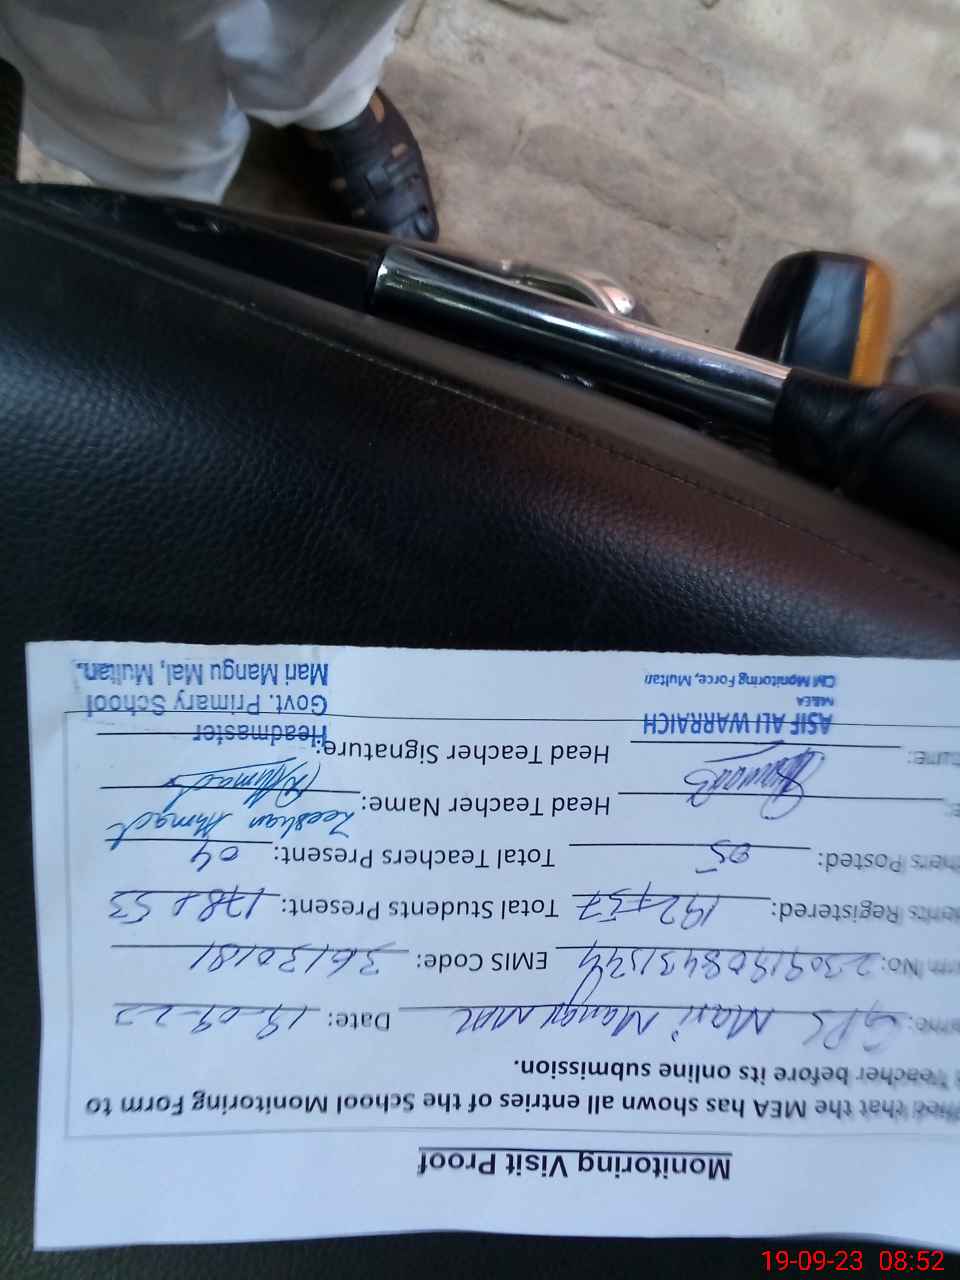 Monitoring Visit Proof
that the MEA has shown all entries of the School Monitoring Form to
Teacher before its online submission.
GPS Mari Mangu Mal Date: 19-09-23
No: EMIS Code: 36130181
Registered: 192+57 Total Students Present: 178+53
Posted: 05 Total Teachers Present: 04
Head Teacher Name: Zeeshan Ahmad
Head Teacher Signature:
ASIF ALI WARRAICH
MEA
CM Monitoring Force, Multan
Headmaster
Govt. Primary School
Mari Mangu Mal, Multan.
19-09-23 08:52